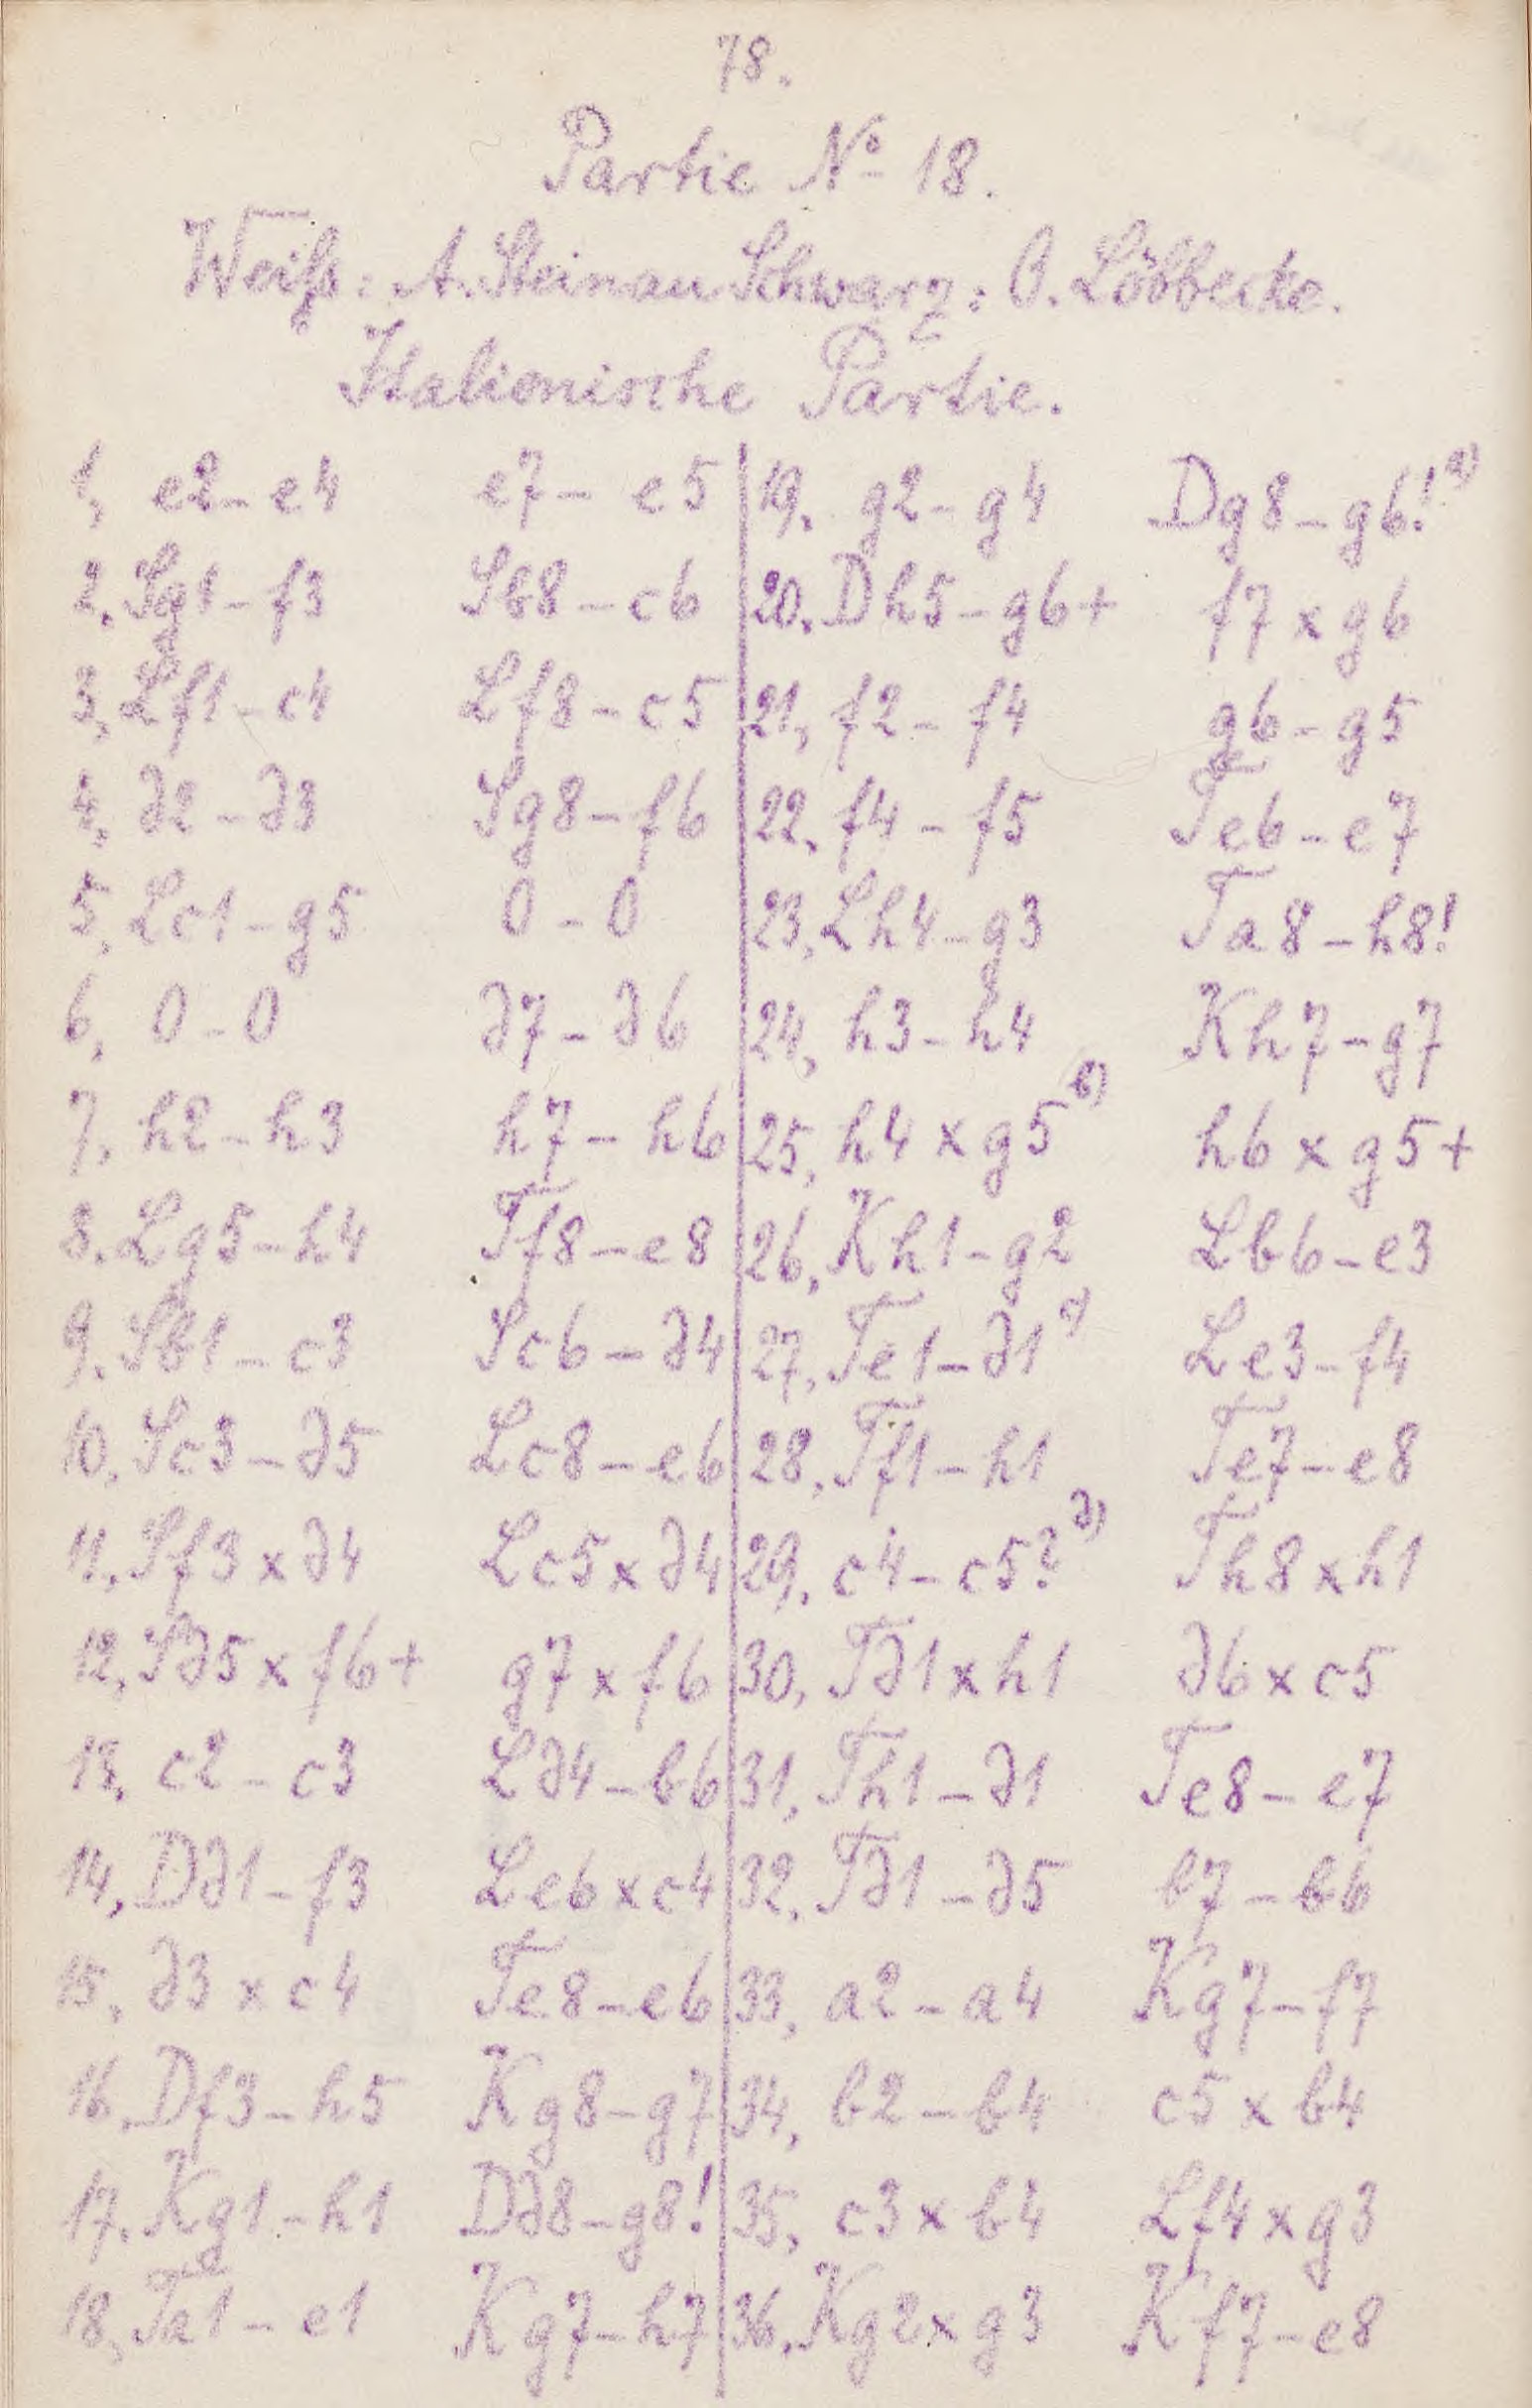 78.
Partie No 18.
Weiß: A. Steinau Schwarz: O. Löbbecke.
Italienische Partie.
1, e2-e4 e7-e5
2. Sg1-f3 Sb8-c6
3, Lf1-c4 Lf8-c5
4, d2-d3 Sg8-f6
5, Lc1-g5 0-0
6, 0-0 d7-d6
7, h2-h3 h7-h6
8. Lg5-h4 Tf8-e8
9. Sb1-c3 Sc6-d4
10. Sc3-d5 Lc8-e6
11. Sf3xd4 Lc5xd4
12, Sd5xf6+ g7xf6
13, c2-c3 Ld4-b6
14, Dd1-f3 Le6xc4
15, d3xc4 Te8-e6
16. Df3-h5 Kg8-g7
17. Kg1-h1 Dd8-g8!
18, Ta1-e1 Kg7-h7
19. g2-g4 Dg8-g6! a)
20. Dh5-g6+ f7xg6
21, f2-f4 g6-g5
22. f4-f5 Te6-e7
23, Lh4-g3 Ta8-h8!
24, h3-h4 Kh7-g7
25, h4xg5 b) h6xg5+
26, Kh1-g2 Lb6-e3
27, Te1-d1 c) Le3-f4
28. Tf1-h1 Te7-e8
29. c4-c5? d) Th8xh1
30, Td1xh1 d6xc5
31, Th1-d1 Te8-e7
32. Td1-d5 b7-b6
33, a2-a4 Kg7-f7
34, b2-b4 c5xb4
35, c3xb4 Lf4xg3
36. Kg2xg3 Kf7-e8